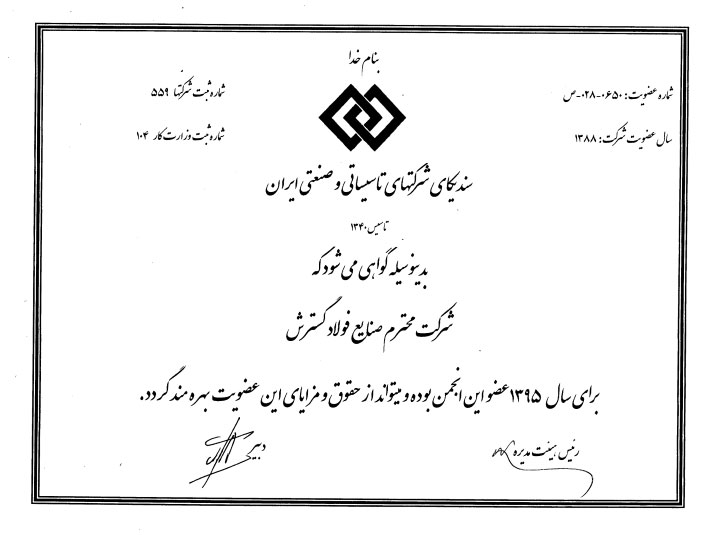 بنام خدا
شماره عضویت: ۰۶۵۰-۰۲۸-ص
شماره ثبت شرکتها ۵۵۹
سال عضویت شرکت: ۱۳۸۸
شماره ثبت وزارت کار ۱۰۴
سندیکای شرکتهای تاسیساتی و صنعتی ایران
تاسیس ۱۳۴۰
بدینوسیله گواهی می شود که
شرکت محترم صنایع فولاد گسترش
برای سال ۱۳۹۵ عضو این انجمن بوده و میتواند از حقوق و مزایای این عضویت بهره مند گردد.
رئیس هیئت مدیره
دبیر